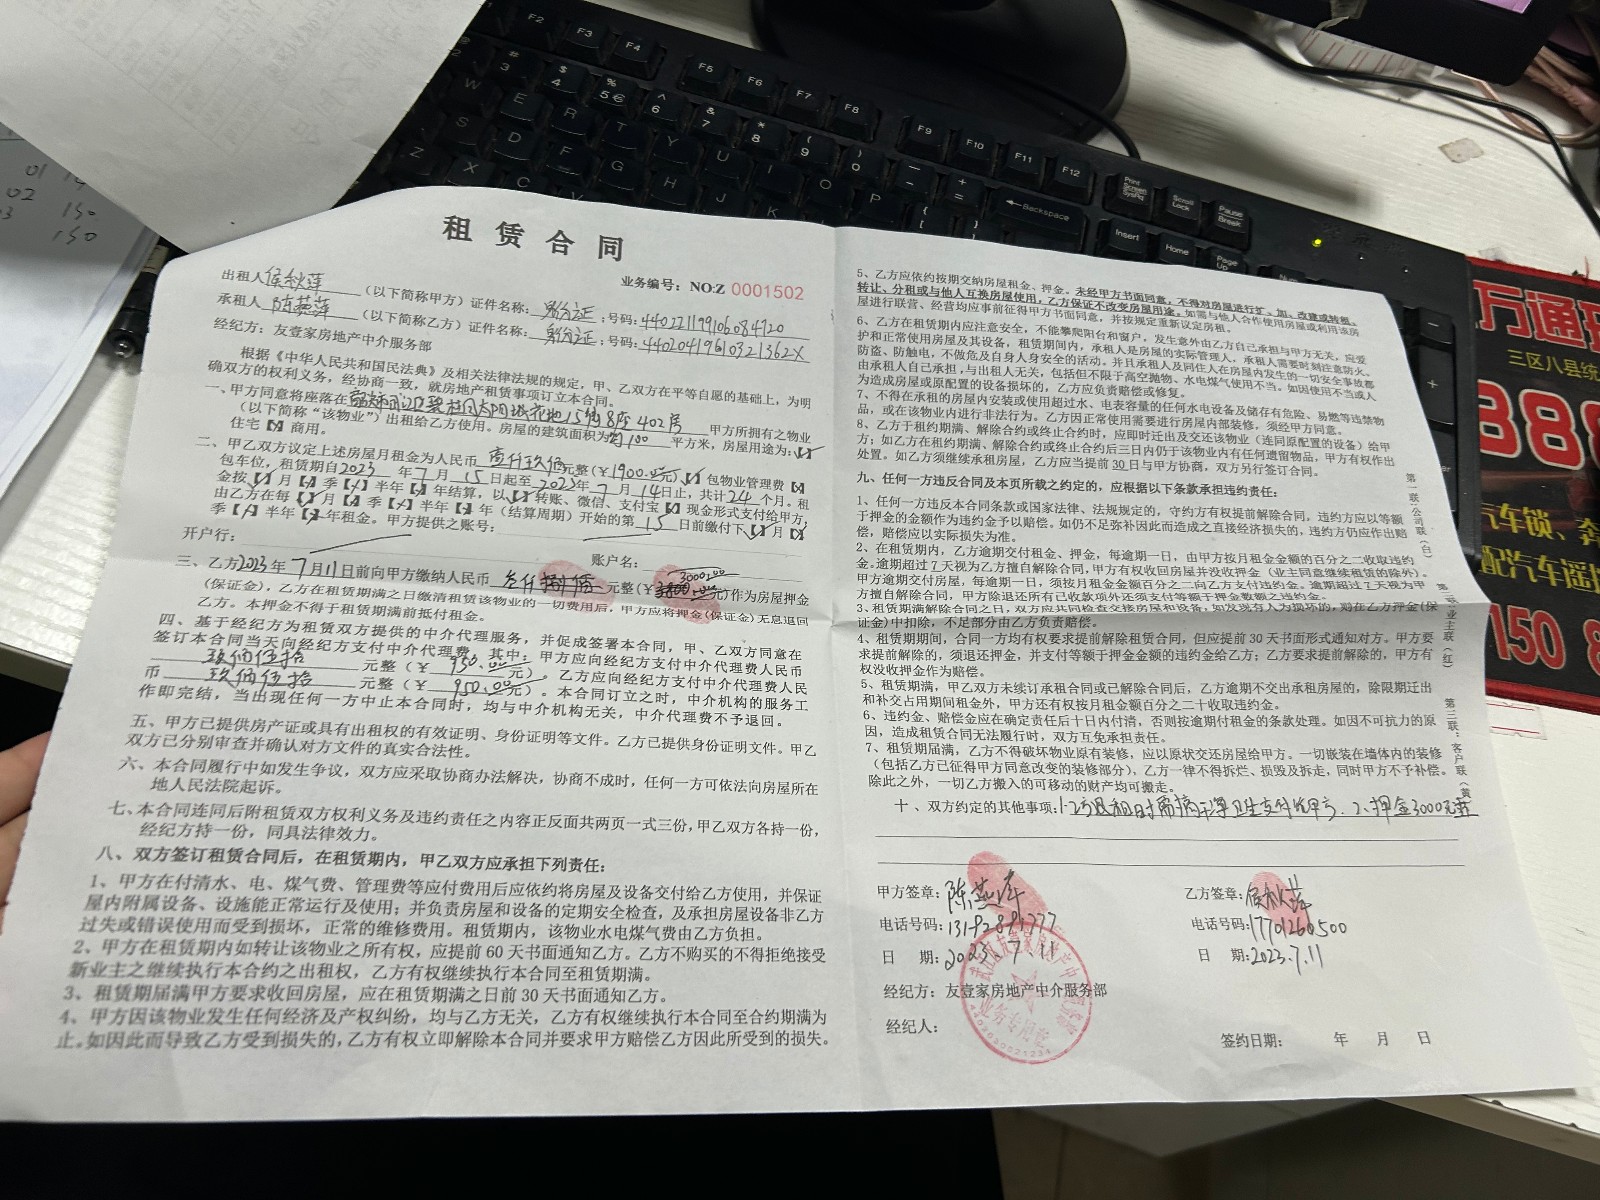 租赁合同
业务编号：NO:Z 0001502
出租人侯秋萍（以下简称甲方）证件名称：身份证；号码：
承租人陈燕萍（以下简称乙方）证件名称：身份证；号码：44020419610321362X
经纪方：友壹家房地产中介服务部
根据《中华人民共和国民法典》及相关法律法规的规定，甲、乙双方在平等自愿的基础上，为明
确双方的权利义务，经协商一致，就房地产租赁事项订立本合同。
一、甲方同意将座落在 太阳城花地 8座402房 甲方所拥有之物业
（以下简称“该物业”）出租给乙方使用。房屋的建筑面积为约100平方米，房屋用途为：【✓】
住宅【×】商用。
二、甲乙双方议定上述房屋月租金为人民币壹仟玖佰元整（￥1900.00元）【✓】包物业管理费【×】
包车位，租赁期自2023年7月15日起至2025年7月14日止，共计24个月。租
金按【✓】月【×】季【×】半年【×】年结算，以【✓】转账、微信、支付宝【×】现金形式支付给甲方，
由乙方在每【✓】月【×】季【×】半年【×】年（结算周期）开始的第15日前缴付下【✓】月【×】
季【×】半年【×】年租金。甲方提供之账号：
开户行： 账户名：
三、乙方2023年7月11日前向甲方缴纳人民币叁仟 元整（￥3000.00元）作为房屋押金
（保证金），乙方在租赁期满之日缴清租赁该物业的一切费用后，甲方应将押金（保证金）无息退回
乙方。本押金不得于租赁期满前抵付租金。
四、基于经纪方为租赁双方提供的中介代理服务，并促成签署本合同，甲、乙双方同意在
签订本合同当天向经纪方支付中介代理费，其中：甲方应向经纪方支付中介代理费人民币
玖佰伍拾元整（￥950.00元）。乙方应向经纪方支付中介代理费人民
币玖佰伍拾元整（￥950.00元）。本合同订立之时，中介机构的服务工
作即完结，当出现任何一方中止本合同时，均与中介机构无关，中介代理费不予退回。
五、甲方已提供房产证或具有出租权的有效证明、身份证明等文件。乙方已提供身份证明文件。甲乙
双方已分别审查并确认对方文件的真实合法性。
六、本合同履行中如发生争议，双方应采取协商办法解决，协商不成时，任何一方可依法向房屋所在
地人民法院起诉。
七、本合同连同后附租赁双方权利义务及违约责任之内容正反面共两页一式三份，甲乙双方各持一份，
经纪方持一份，同具法律效力。
八、双方签订租赁合同后，在租赁期内，甲乙双方应承担下列责任：
1、甲方在付清水、电、煤气费、管理费等应付费用后应依约将房屋及设备交付给乙方使用，并保证
屋内附属设备、设施能正常运行及使用；并负责房屋和设备的定期安全检查，及承担房屋设备非乙方
过失或错误使用而受到损坏，正常的维修费用。租赁期内，该物业水电煤气费由乙方负担。
2、甲方在租赁期内如转让该物业之所有权，应提前60天书面通知乙方。乙方不购买的不得拒绝接受
新业主之继续执行本合约之出租权，乙方有权继续执行本合同至租赁期满。
3、租赁期届满甲方要求收回房屋，应在租赁期满之日前30天书面通知乙方。
4、甲方因该物业发生任何经济及产权纠纷，均与乙方无关，乙方有权继续执行本合同至合约期满为
止。如因此而导致乙方受到损失的，乙方有权立即解除本合同并要求甲方赔偿乙方因此所受到的损失。
5、乙方应依约按期交纳房屋租金、押金。未经甲方书面同意，不得对房屋进行扩、加、改建或转租、
转让、分租或与他人互换房屋使用，乙方保证不改变房屋用途。如需与他人合作使用房屋或利用该房
屋进行联营、经营均应事前征得甲方书面同意，并按规定重新议定房租。
6、乙方在租赁期内应注意安全，不能攀爬阳台和窗户，发生意外由乙方自己承担与甲方无关，应爱
护和正常使用房屋及其设备，租赁期间内，承租人是房屋的实际管理人，承租人需要时刻注意防火、
防盗、防触电，不做危及自身人身安全的活动。并且承租人及同住人在房屋内发生的一切安全事故都
由承租人自己承担，与出租人无关，包括但不限于高空抛物、水电煤气使用不当。如因使用不当或人
为造成房屋或原配置的设备损坏的，乙方应负责赔偿或修复。
7、不得在承租的房屋内安装或使用超过水、电表容量的任何水电设备及储存有危险、易燃等违禁物
品，或在该物业内进行非法行为。乙方因正常使用需要进行房屋内部装修，须经甲方同意。
8、乙方于租约期满、解除合约或终止合约时，应即时迁出及交还该物业（连同原配置的设备）给甲
方；如乙方在租约期满、解除合约或终止合约后三日内仍于该物业内有任何遗留物品，甲方有权作出
处置。如乙方须继续承租房屋，乙方应当提前30日与甲方协商，双方另行签订合同。
九、任何一方违反合同及本页所载之约定的，应根据以下条款承担违约责任：
1、任何一方违反本合同条款或国家法律、法规规定的，守约方有权提前解除合同，违约方应以等额
于押金的金额作为违约金予以赔偿。如仍不足弥补因此而造成之直接经济损失的，违约方仍应作出赔
偿，赔偿应以实际损失为准。
2、在租赁期内，乙方逾期交付租金、押金，每逾期一日，由甲方按月租金金额的百分之二收取违约
金。逾期超过7天视为乙方擅自解除合同，甲方有权收回房屋并没收押金（业主同意继续租赁的除外）。
甲方逾期交付房屋，每逾期一日，须按月租金金额百分之二向乙方支付违约金。逾期超过7天视为甲
方擅自解除合同，甲方除退还所有已收款项外还须支付等额于押金数额之违约金。
3、租赁期满解除合同之日，双方应共同检查交接房屋和设备，如发现有人为损坏的，则在乙方押金（保
证金）中扣除，不足部分由乙方负责赔偿。
4、租赁期期间，合同一方均有权要求提前解除租赁合同，但应提前30天书面形式通知对方。甲方要
求提前解除的，须退还押金，并支付等额于押金金额的违约金给乙方；乙方要求提前解除的，甲方有
权没收押金作为赔偿。
5、租赁期满，甲乙双方未续订承租合同或已解除合同后，乙方逾期不交出承租房屋的，除限期迁出
和补交占用期间租金外，甲方还有权按月租金额百分之二十收取违约金。
6、违约金、赔偿金应在确定责任后十日内付清，否则按逾期付租金的条款处理。如因不可抗力的原
因，造成租赁合同无法履行时，双方互免承担责任。
7、租赁期届满，乙方不得破坏物业原有装修，应以原状交还房屋给甲方。一切嵌装在墙体内的装修
（包括乙方已征得甲方同意改变的装修部分），乙方一律不得拆烂、损毁及拆走，同时甲方不予补偿。
除此之外，一切乙方搬入的可移动的财产均可搬走。
十、双方约定的其他事项：1.乙方退租时需搞干净卫生支付给甲方. 2、押金3000元整
甲方签章：陈燕萍
乙方签章：侯秋萍
电话号码：
电话号码：17701260500
日 期：2023.7.11
日 期：2023.7.11
经纪方：友壹家房地产中介服务部
经纪人：
签约日期： 年 月 日
业务专用章
第一联：公司联（白）
第二联：业主联（红）
第三联：客户联（黄
万通
三区八县统
888
汽车锁、奔
配汽车遥
150 8